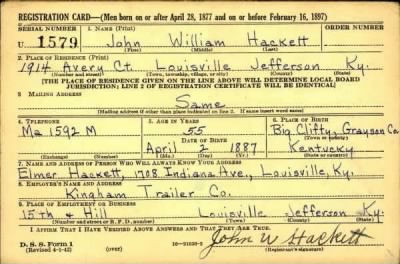 REGISTRATION CARD—(Men born on or after April 28, 1877 and on or before February 16, 1897)
SERIAL NUMBER 1. NAME (Print) ORDER NUMBER
U 1579 John William Hackett
(First) (Middle) (Last)
2. PLACE OF RESIDENCE (Print)
1914 Avery Ct. Louisville Jefferson Ky.
(Number and street) (Town, township, village, or city) (County) (State)
[THE PLACE OF RESIDENCE GIVEN ON THE LINE ABOVE WILL DETERMINE LOCAL BOARD
JURISDICTION; LINE 2 OF REGISTRATION CERTIFICATE WILL BE IDENTICAL]
3. MAILING ADDRESS
Same
[Mailing address if other than place indicated on line 2. If same insert word same]
4. TELEPHONE 5. AGE IN YEARS 6. PLACE OF BIRTH
Ma 1592 M 55 Big Clifty, Grayson Co.
DATE OF BIRTH (Town or county)
April 2 1887 Kentucky
(Exchange) (Number) (Mo.) (Day) (Yr.) (State or country)
7. NAME AND ADDRESS OF PERSON WHO WILL ALWAYS KNOW YOUR ADDRESS
Elmer Hackett, 1708 Indiana Ave., Louisville, Ky.
8. EMPLOYER'S NAME AND ADDRESS
Kingham Trailer Co.
9. PLACE OF EMPLOYMENT OR BUSINESS
15th & Hill Louisville Jefferson Ky.
(Number and street or R. F. D. number) (Town) (County) (State)
I AFFIRM THAT I HAVE VERIFIED ABOVE ANSWERS AND THAT THEY ARE TRUE.
D. S. S. Form 1
(Revised 4-1-42) (over) John W Hackett